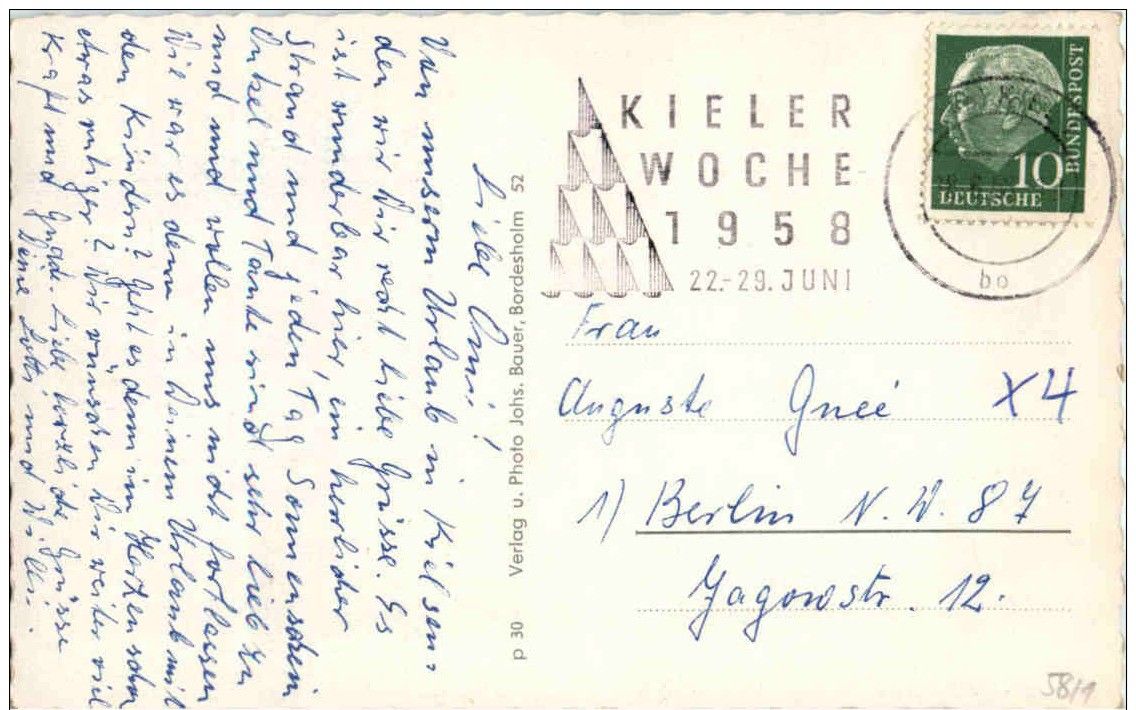 Liebe Omi!
Von unserm Urlaub in Kiel sen-
den wir Dir recht liebe Grüsse. Es
ist wunderbar hier, ein herlicher
Strand und jeden Tag Sonnenschein
Onkel und Tante sind sehr lieb zu
uns und wollen uns nicht fortlassen
Wie war es denn in Deinem Urlaub mit
den Kindern? Geht es denn im Herzen schon
etwas ruhiger? Wir wünschen Dir weiter viel
Kraft und Liebe herzliche Grüsse
Deine und Willi.
p 30 Verlag u. Photo Johs. Bauer, Bordesholm 52
KIELER
WOCHE
1958
22.-29. JUNI
bo
10
DEUTSCHE
BUNDESPOST
Frau
Auguste Gneé X4
1) Berlin N.W. 87
Jagowstr. 12.
58/1